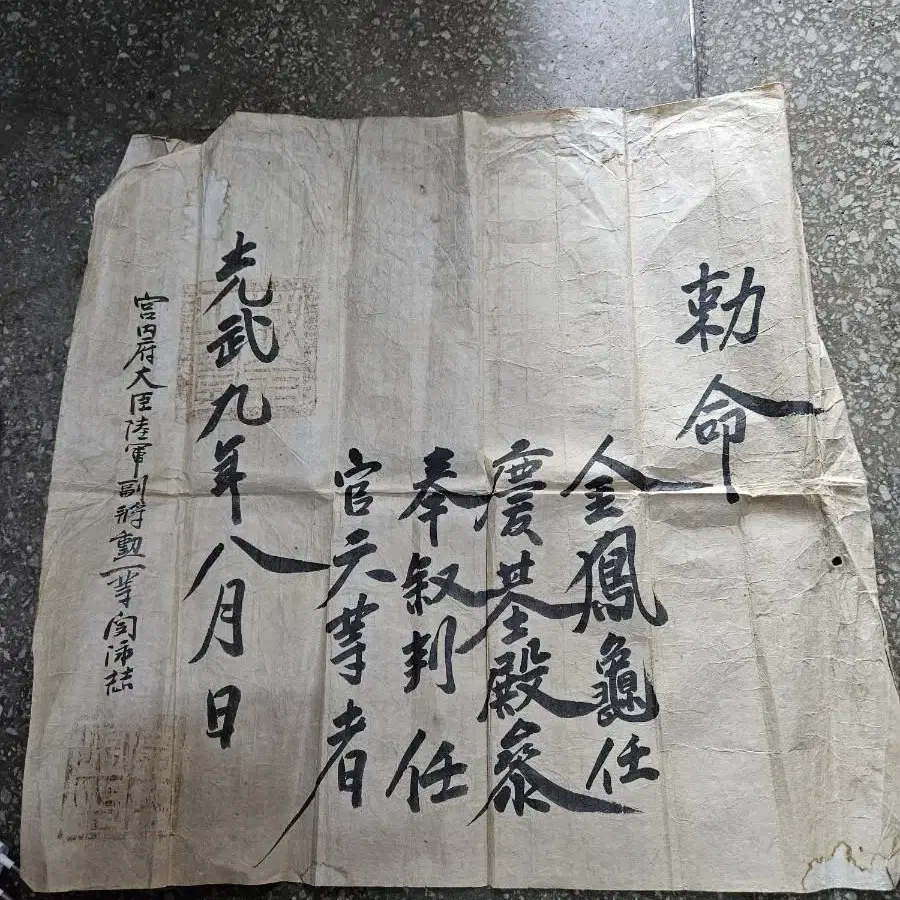 勅命
金鳳龜任
慶基殿參
奉叙判任
官六等者
光武九年八月日
宮內府大臣陸軍副將勳一等閔泳喆